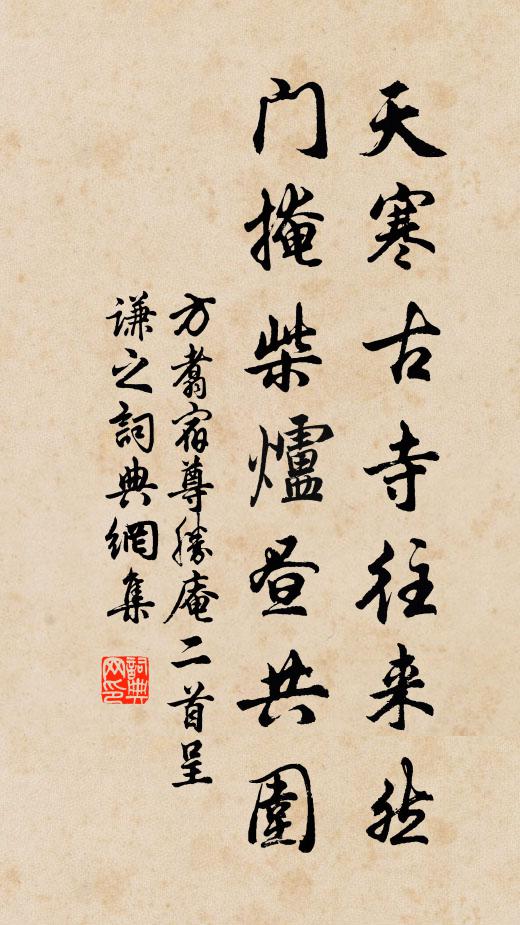 天寒古寺往来
门掩柴爐昼共圍
方翥宿尊勝庵二首呈
谦之詞典網集
詞典网印